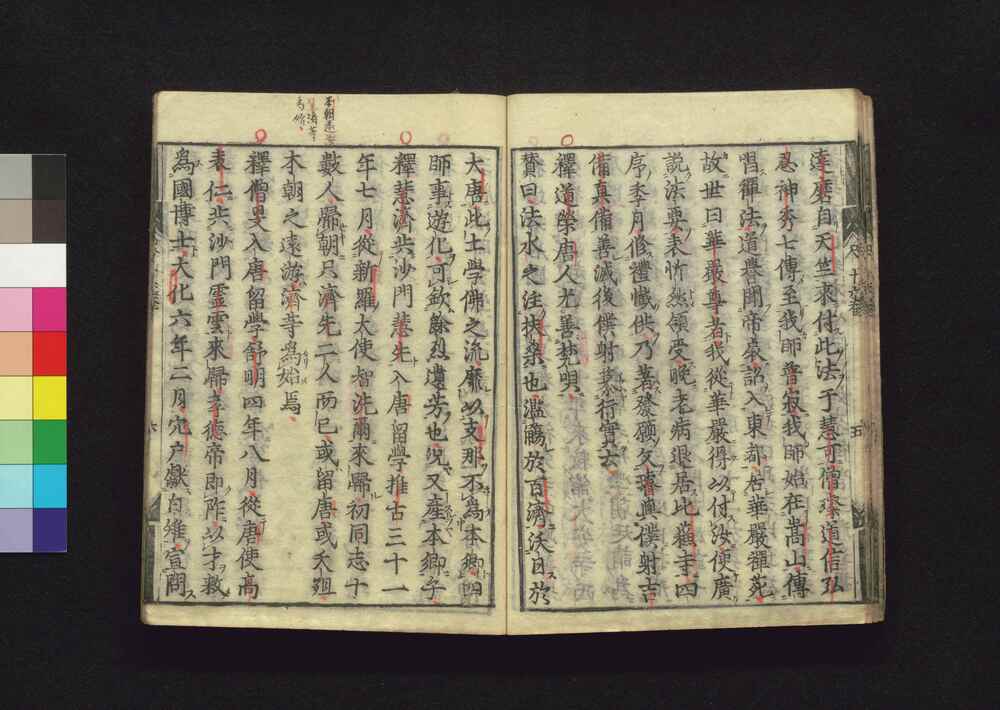 達磨自天竺來付此法于慧可僧璨道信弘
忍神秀七傳至我師普寂我師始在嵩山傳
唱禪法道譽聞帝宸詔入東都居華嚴禪苑
故世曰華嚴尊者我從華嚴得以付汝便廣
說法要表忻然領受晚老病退居比蘇寺四
序季月修禮懺供乃著發願文璿與僕射吉
備真備善滅後僕射纂行實云
釋道榮唐人尤善梵唄
贊曰法水之注扶桑也濫觴於百濟沃日於
大唐此土學佛之流靡以支那不為本卿四
師事遊化可歆餘烈遺芳也況又產本卿乎
釋慧濟共沙門慧先入唐留學推古三十一
年七月從新羅大使智洗爾來歸初同志十
數人歸朝只濟先二人而已或留唐或夭殂
本朝之遠游濟等為始焉
釋僧旻入唐留學舒明四年八月從唐使高
表仁共沙門靈雲來歸孝德帝即阼以才敕
為國博士大化六年二月穴戶獻白雉宣問
五
六